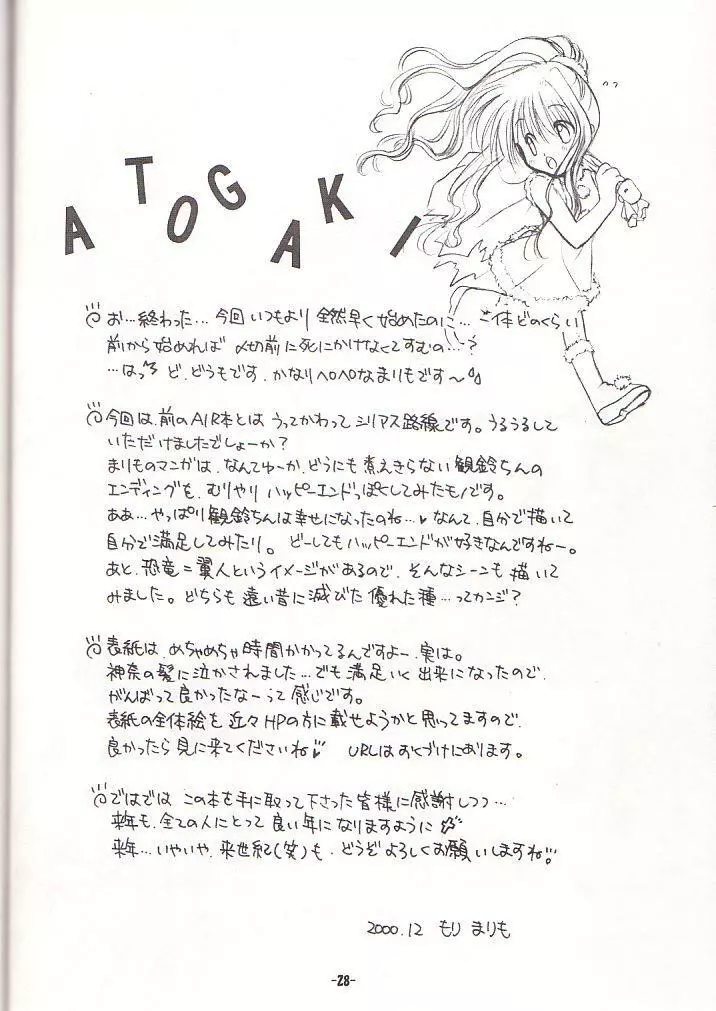 ATOGAKI
お…終わった…今回いつもより全然早く始めたのに…一体どのくらい
前から始めれば〆切前に死にかけなくてすむの…?
…はっ ど、どうもです、かなりヘロヘロなまりもです〜♪
今回は、前のAIR本とはうってかわってシリアス路線です。うるうるして
いただけましたでしょーか?
まりものマンガは、なんてゆーか、どうにも煮えきらない観鈴ちんの
エンディングを、むりやりハッピーエンドっぽくしてみたものです。
ああ…やっぱり観鈴ちんは幸せになったのね…♥なんて、自分で描いて
自分で満足してみたり。どーしてもハッピーエンドが好きなんですねー。
あと、恐竜=翼人というイメージがあるので、そんなシーンも描いて
みました。どちらも遠い昔に滅びた優れた種…ってカンジ?
表紙は、めちゃめちゃ時間かかってるんですよー、実は。
神奈の髪に泣かされました…でも満足いく出来になったので、
がんばって良かったなーって感じです。
表紙の全体絵を近々HPの方に載せようかと思ってますので、
良かったら見に来てくださいね♥ URLはおくづけにあります。
ではでは、この本を手に取って下さった皆様に感謝しつつ…
来年も、全ての人にとって良い年になりますように
来年…いやいや、来世紀(笑)も、どうぞよろしくお願いしますね!
2000.12 もり まりも
-28-